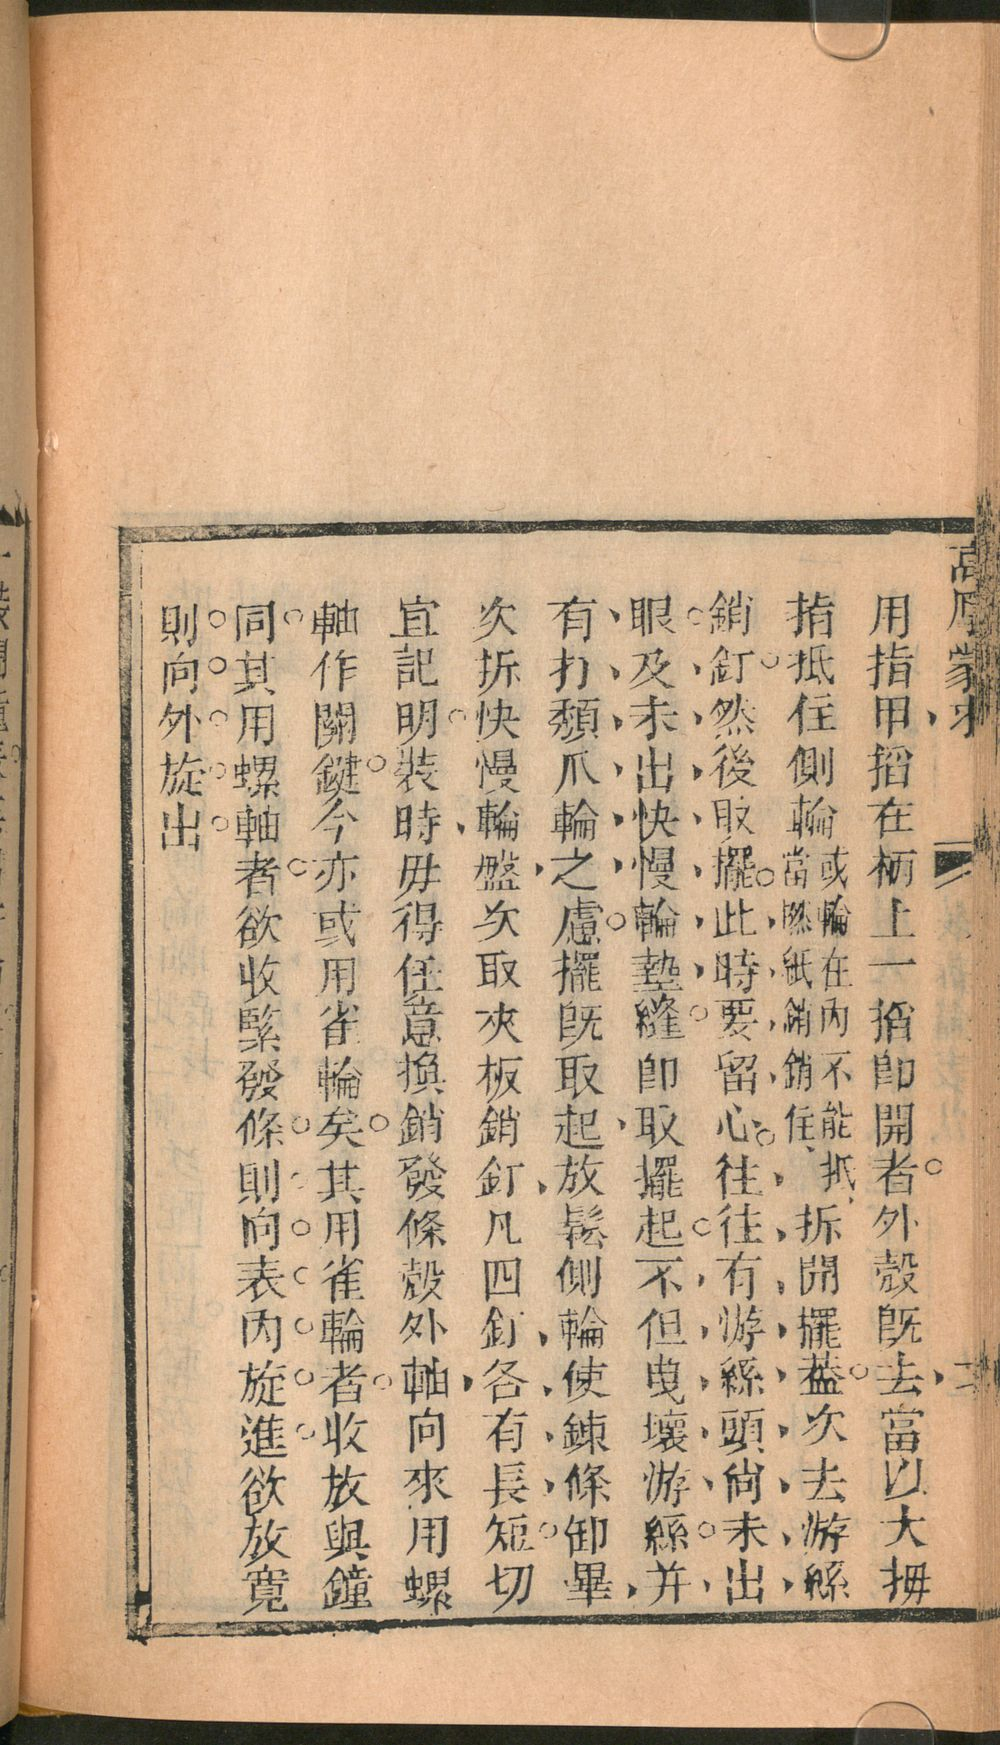 高厚蒙求
用指甲搯在柄上一搯卽開者外殼旣去當以大拇
指抵住側輪或輪在內不能抵當橪紙銷銷住拆開擺葢次去游絲
銷釘然後取擺此時要留心往往有游絲頭尙未出
眼及未出快慢輪墊縫卽取擺起不但曳壞游絲并
有打頽爪輪之慮擺旣取起放鬆側輪使鍊條卸畢
次拆快慢輪盤次取夾板銷釘凡四釘各有長短切
宜記明裝時毋得任意換銷發條殼外軸向來用螺
軸作關鍵今亦或用雀輪矣其用雀輪者收放與鐘
同其用螺軸者欲收緊發條則向表內旋進欲放寬
則向外旋出